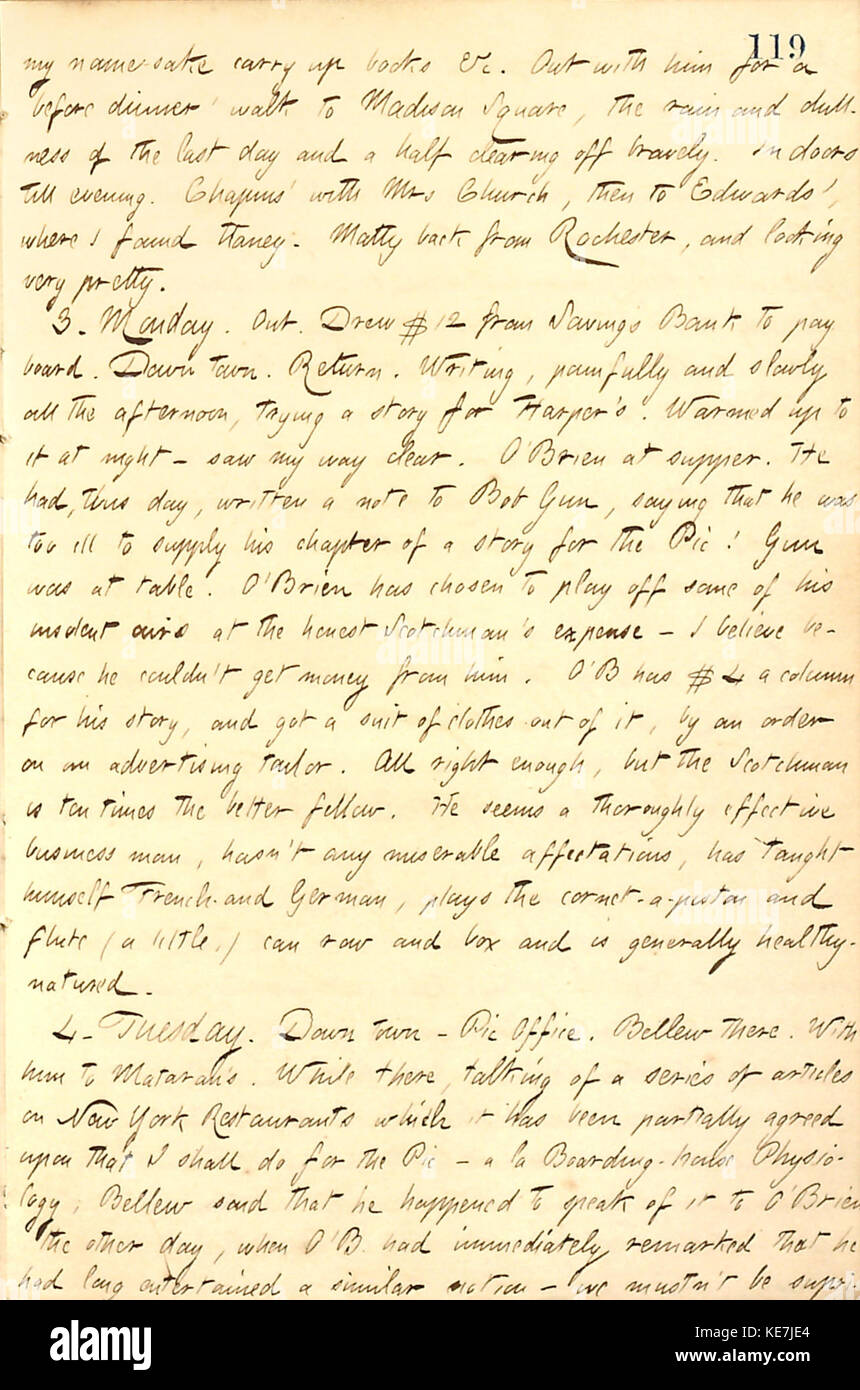 119
my name-sake carry up books &c. Out with him for a
before dinner' walk to Madison Square, the rain and dull-
ness of the last day and a half clearing off bravely. In doors
till evening. Chapins' with Mrs Church, then to Edwards',
where I found Haney. Matty back from Rochester, and looking
very pretty.
3. Monday. Out. Drew $12 from Savings Bank to pay
board. Down town. Return. Writing, painfully and slowly
all the afternoon, trying a story for Harper's. Warmed up to
it at night — saw my way clear. O'Brien at supper. He
had, this day, written a note to Bob Gun, saying that he was
too ill to supply his chapter of a story for the Pic! Gun
was at table. O'Brien has chosen to play off some of his
insolent airs at the honest Scotchman's expense — I believe be-
cause he couldn't get money from him. O'B has $4 a column
for his story, and got a suit of clothes out of it, by an order
on an advertising tailor. All right enough, but the Scotchman
is ten times the better fellow. He seems a thoroughly effective
business man, hasn't any miserable affectations, has taught
himself French and German, plays the cornet-a-piston and
flute (a little,) can row and box and is generally healthy-
natured.
4. Tuesday. Down town — Pic Office. Bellew there. With
him to Mataran's. While there, talking of a series of articles
on New York Restaurants which it has been partially agreed
upon that I shall do for the Pic — a la Boarding-house Physio-
logy, Bellew said that he happened to speak of it to O'Brien
the other day, when O'B. had immediately remarked that he
had long entertained a similar notion — we mustn't be surpr-
alamy
Image ID: KE7JE4
www.alamy.com